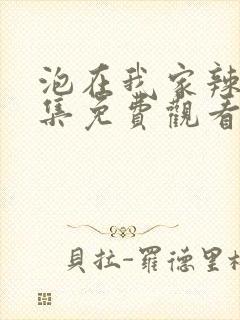 泡在我家辣
集免費觀看
貝拉-羅德里